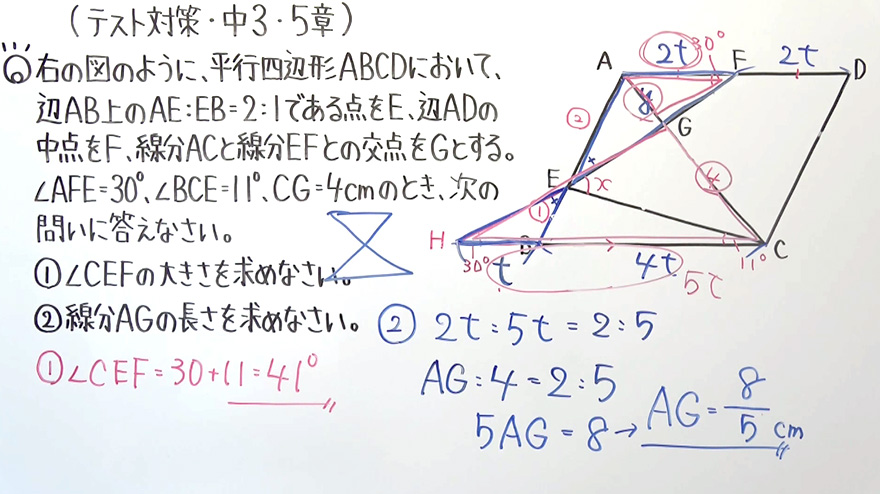 (テスト対策・中3・5章)
⑥右の図のように、平行四辺形ABCDにおいて、
辺AB上のAE:EB=2:1である点をE、辺ADの
中点をF、線分ACと線分EFとの交点をGとする。
∠AFE=30°、∠BCE=11°、CG=4cmのとき、次の
問いに答えなさい。
①∠CEFの大きさを求めなさい。
②線分AGの長さを求めなさい。
①∠CEF=30+11=41°
A
2t
30°
F
2t
D
②
y
G
E
x
4
①
H
30°
t
B
4t
11°
C
5t
② 2t:5t=2:5
AG:4=2:5
5AG=8→AG=8/5 cm